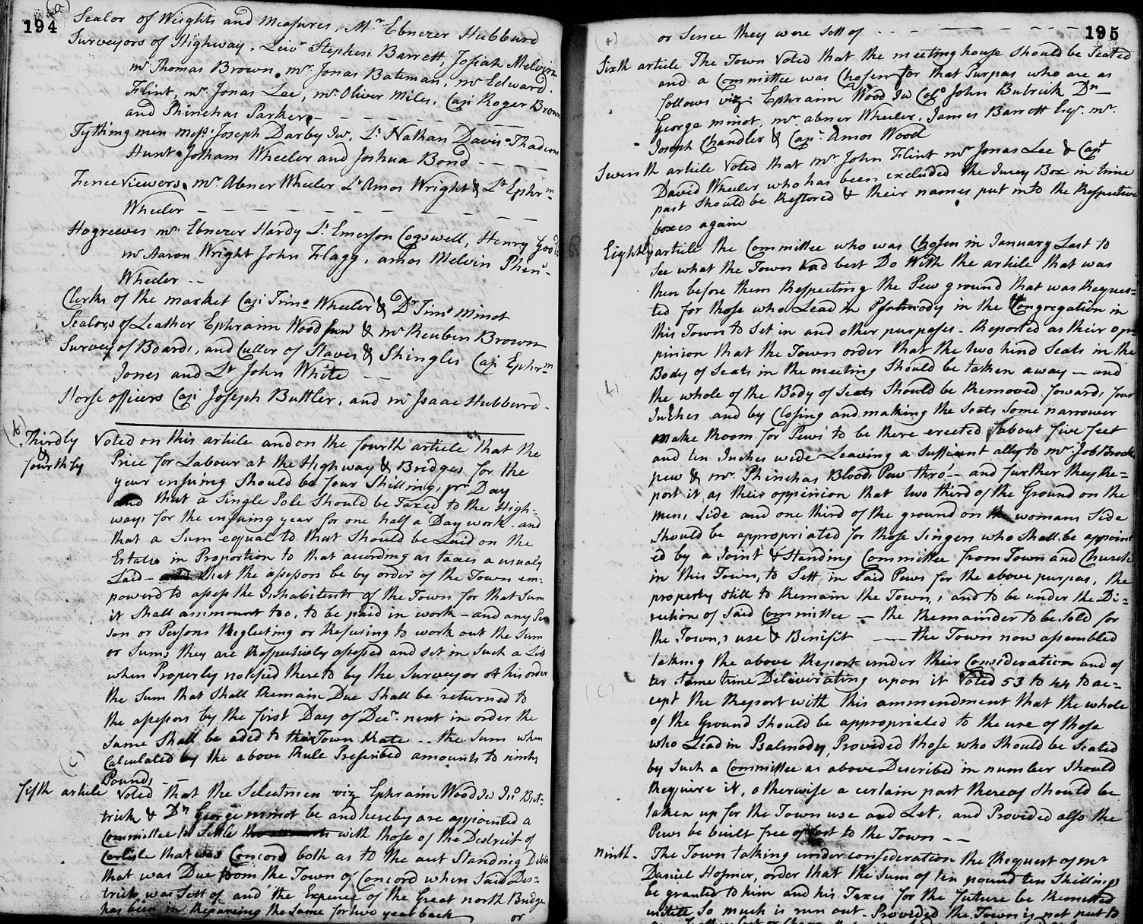 194
Sealor of Weights and measures, Mr Ebenezer Hubbard
Surveyors of Highway, Lieu Stephen Barrett, Josiah Melvin
mr Thomas Brown, mr Jonas Bateman, mr Edward
Flint, mr Jonas Lee, mr Oliver Miles, Cap Roger Brown
and Phinehas Parker
Tything men Joseph Darby Jur, Lt Nathan Davis Thadeus
Hunt Jotham Wheeler and Joshua Bond
Fence Viewers, mr Abner Wheeler Lt Amos Wright & Lt Ephrm
Wheeler
Hogreeves mr Ebenzer Hardy Lt Emerson Cogswell, Henry
mr Aaron Wright John Flagg, amos Melvin Phen-
Wheeler
Clerks of the market Cap Timo Wheeler & Dr Timo minot
Sealors of Leather Ephraim Wood Junr & mr Reuben Brown
Survey of Boards, and Culler of Staves & Shingles Cap Ephrm
Jones and Lt John White
Horse officers Cap Joseph Buttler, and mr Isaac Hubbard
Thirdly & fourthly Voted on this article and on the fourth article that the
Price for Labour at the Highway & Bridges for the
year ensuing Should be four Shilling, pr Day
and that a Single Pole Should be Taxed to the High-
ways for the ensuing year for one half a Day work and
that a Sum equal to that Should be Laid on the
Estates in Proportion to that acording as taxes a usualy
Laid - and that the assessors be by order of the Town em-
powerd to assess the Inhabitents of the Town for that Sum
it Shall ammount too, to be paid in work - and any Per
son or Persons Neglecting or Refusing to work out the Sum
or Sums they are Respectively assessed and set in Such a List
when Properly notifed thereto by the Surveyor of his order
the Sum that Shall Remain Due Shall be returned to
the assessors by the first Day of Decr next in order the
Same Shall be aded to their Town Rate .. the Sum when
Calculated by the above Rule Presented amounts to ninty
Pounds
fifth article Voted that the Selectmen viz Ephraim Wood Jur Jno But-
trick & Dn George minot be and hereby are appointed a
Committee to Settle the accounts with those of the District of
Carlisle that was Concord both as to the out Standing Debts
that was Due from the Town of Concord when Said Dis-
trict was Sett of and the Expence of the Great north Bridge
has been in Repairing the Same for two year back
or
195
or Sence they were Sett of
Sixth article The Town Voted that the meeting house Should be Seated
and a Committee was Chosen for that Purpas who are as
follows viz Ephraim Wood Jur Colo John Butrick Dn
George minot, mr abner Wheeler, James Barrett Esqr mr
Joseph Chandler & Capt Amos Wood
Seventh article Voted that mr John Flint mr Jonas Lee & Capt
David Wheeler who has been excluded the Jurey Box in time
past Should be Restored & their names put into the Respective
boxes again
Eightly article the Committee who was Chosen in January Last to
See what the Town had best Do With the article that was
then before them Respecting the Pew ground that was Reques=
ted for those who Lead in Psalmody in the Congregation in
this Town to Set in and other purposes - Reported as their opi
pinion that the Town order that the two hind Seats in the
Body of Seats in the meeting Should be taken away - and
the whole of the Body of Seats Should be Removed foward, four
Inches and by Closing and making the Seats, Some narrower
make Room for Pews to be there erected about five feet
and ten Inches wide Leaving a Sufficent ally to mr Job Brooks
pew & mr Phinehas Blood Pew thro' - and further they Re-
port it as their oppinion that two third of the Ground on the
mens Side and one third of the ground on the womans Side
Should be appropriated for those Singers who Shall be appoint
ed by a Joint & Standing Committee from Town and Church
in this Town, to Sett, in Said Pews for the above purpas, the
property Still to Remain the Town, and to be under the Di-
rection of Said Committee - the Remainder to be Sold for
the Town,s use & Binifit - the Town now assembled
taking the above Report under their Consideration and af
ter Some time Deliverating upon it Voted 53 to 44 to ac-
cept the Report with this ammendment that the whole
of the Ground Should be appropriated to the use of those
who Lead in Psalmody Provided those who Should be Seated
by Such a Committee as above Described in number Should
Require it, otherwise a certain part thereof Should be
taken up for the Town use and Let, and Provided also the
Pews be built free of Cost to the Town
ninth. The Town taking under consideration the Request of mr
Daniel Hosmer, order that the Sum of ten pound ten Shillings
be granted to him and his Taxes for the future be Remitted
untill So much is run out. Provided the Town is not put to